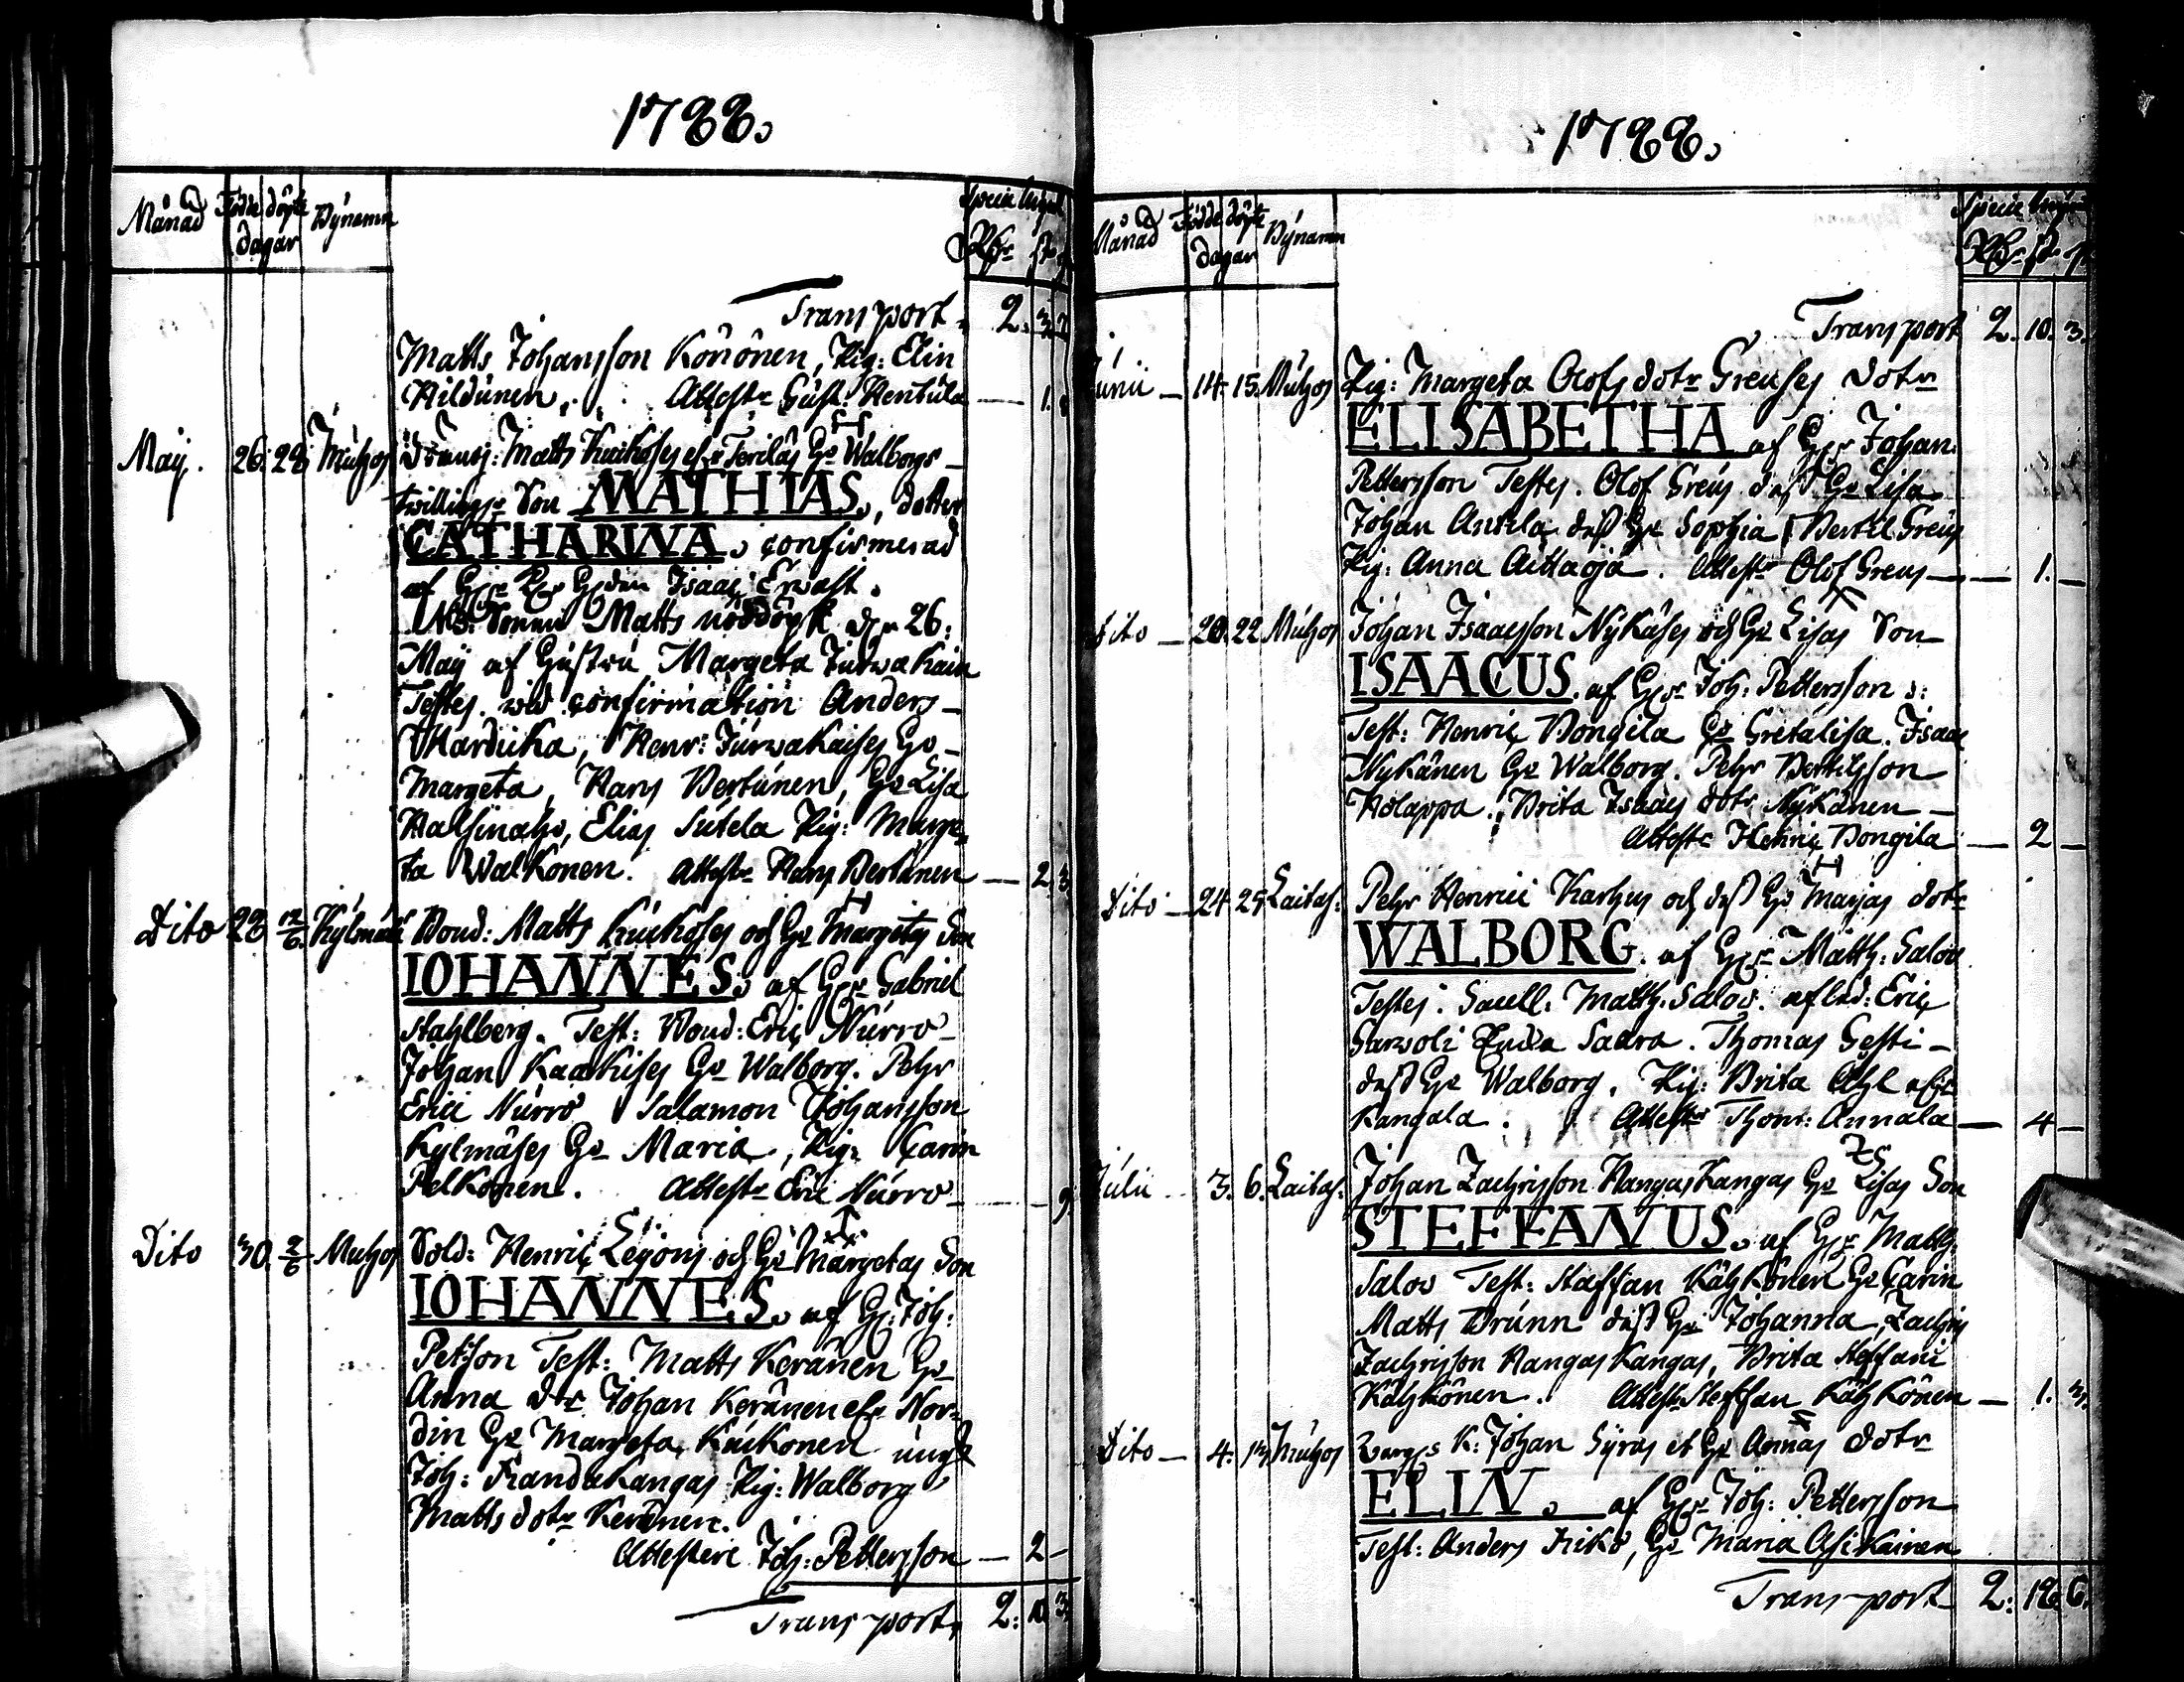 1788.
Månad Födde döpte Bÿnamn
dagar
Transport. 2. 3.
Matts Johansson Könönen, Pig: Elin
Hildunen, Attestr Gust: Henbula — 1.
Maÿ. 26. 28 Muhos Matts Kuikoses Walborgs
twillings Son MATHIAS., dotter
CATHARINA. confirmerad
af Isaac Erwast.
NB: Sonen Matts nöddöpt d. 26.
Maÿ af Hustru Margeta Turwakain
Testes wid confirmation Anders
Mardicka, Henr: Turwakaises Ho
Margeta, Hans Bertunen, Ho Lisa
Halsinaho, Elias Sutela Pig: Marge-
ta Walkonen. Attestr Hans Bertunen — 2. 3
Dito 28 Kylmälä Bond: Matts Kuikoses och Ho Margetas Son
IOHANNES. af Gabriel
Stahlberg. Test: Bond: Eric Nurro
Johan Kaakuses Ho Walborg. Pehr
Erici Nurro Salamon Johansson
Kylmäses Ho Maria, Pig: Carin
Pelkonen. Attestr Eric Nurro — 9.
Dito 30. 2/6 Muhos Sold: Henric Legons och Ho Margetas Son
IOHANNES. af Joh:
Petsson Test: Matts Keränen Ho
Anna Johan Keränen Nor-
din Ho Margeta Kuikonen ungk
Joh: Frandakangas Pig: Walborg
Matts dotr Keränen.
Attestere Joh: Pettersson — 2 —
Transport, 2. 10. 3.
1788.
Månad Födde döpte Bÿnamn
dagar
Transport 2. 10. 3.
Junii — 14. 15. Muhos Pig: Margeta Olofsdotr Greuses dotr
ELISABETHA af Johan
Pettersson Testes. Olof Greus dess Ho Lisa
Johan Anttila dess Ho Sophia Bertel Greus
Pig: Anna Aittaoja. Attestr Olof Greus — 1. —
Dito — 20. 22 Muhos Johan Isaacsson Nÿkäses och Ho Lisas Son
ISAACUS. af Joh: Pettersson
Test: Henric Bongila Ho Gretalisa. Isaac
Nykänen Ho Walborg. Pehr Bertilsson
Holappa. Brita Isaacs dotr Nÿkänen —
Attestr Henric Bongila — 2 —
Dito — 24. 29 Laitas: Pehr Henrici Karhus och dess Ho Marjas dotr
WALBORG. af Matth: Salov
Testes. Matth. Salov. Eric
Sarwoli Saara. Thomas Sesti —
dess Ho Walborg. Pig: Brita
Kangala. Attestr Thom: Annala — 4 —
Julii — 3. 6. Laitas: Johan Zachrisson Hangaskangas Ho Lisas Son
STEFFANUS. af Matth:
Salov Test: Staffan Kähkönen Ho Carin
Matts Brunn dess Ho Johanna, Zachris
Zachrisson Hangaskangas, Brita Steffani
Kähkönen. Attestr Steffan Kähkönen — 1. 3.
Dito — 4. 13. Muhos Johan Syräs et Ho Annas dotr
ELIN. af Joh: Pettersson
Test: Anders Friko, Ho Maria Asikainen
Transport 2. 18. 6.